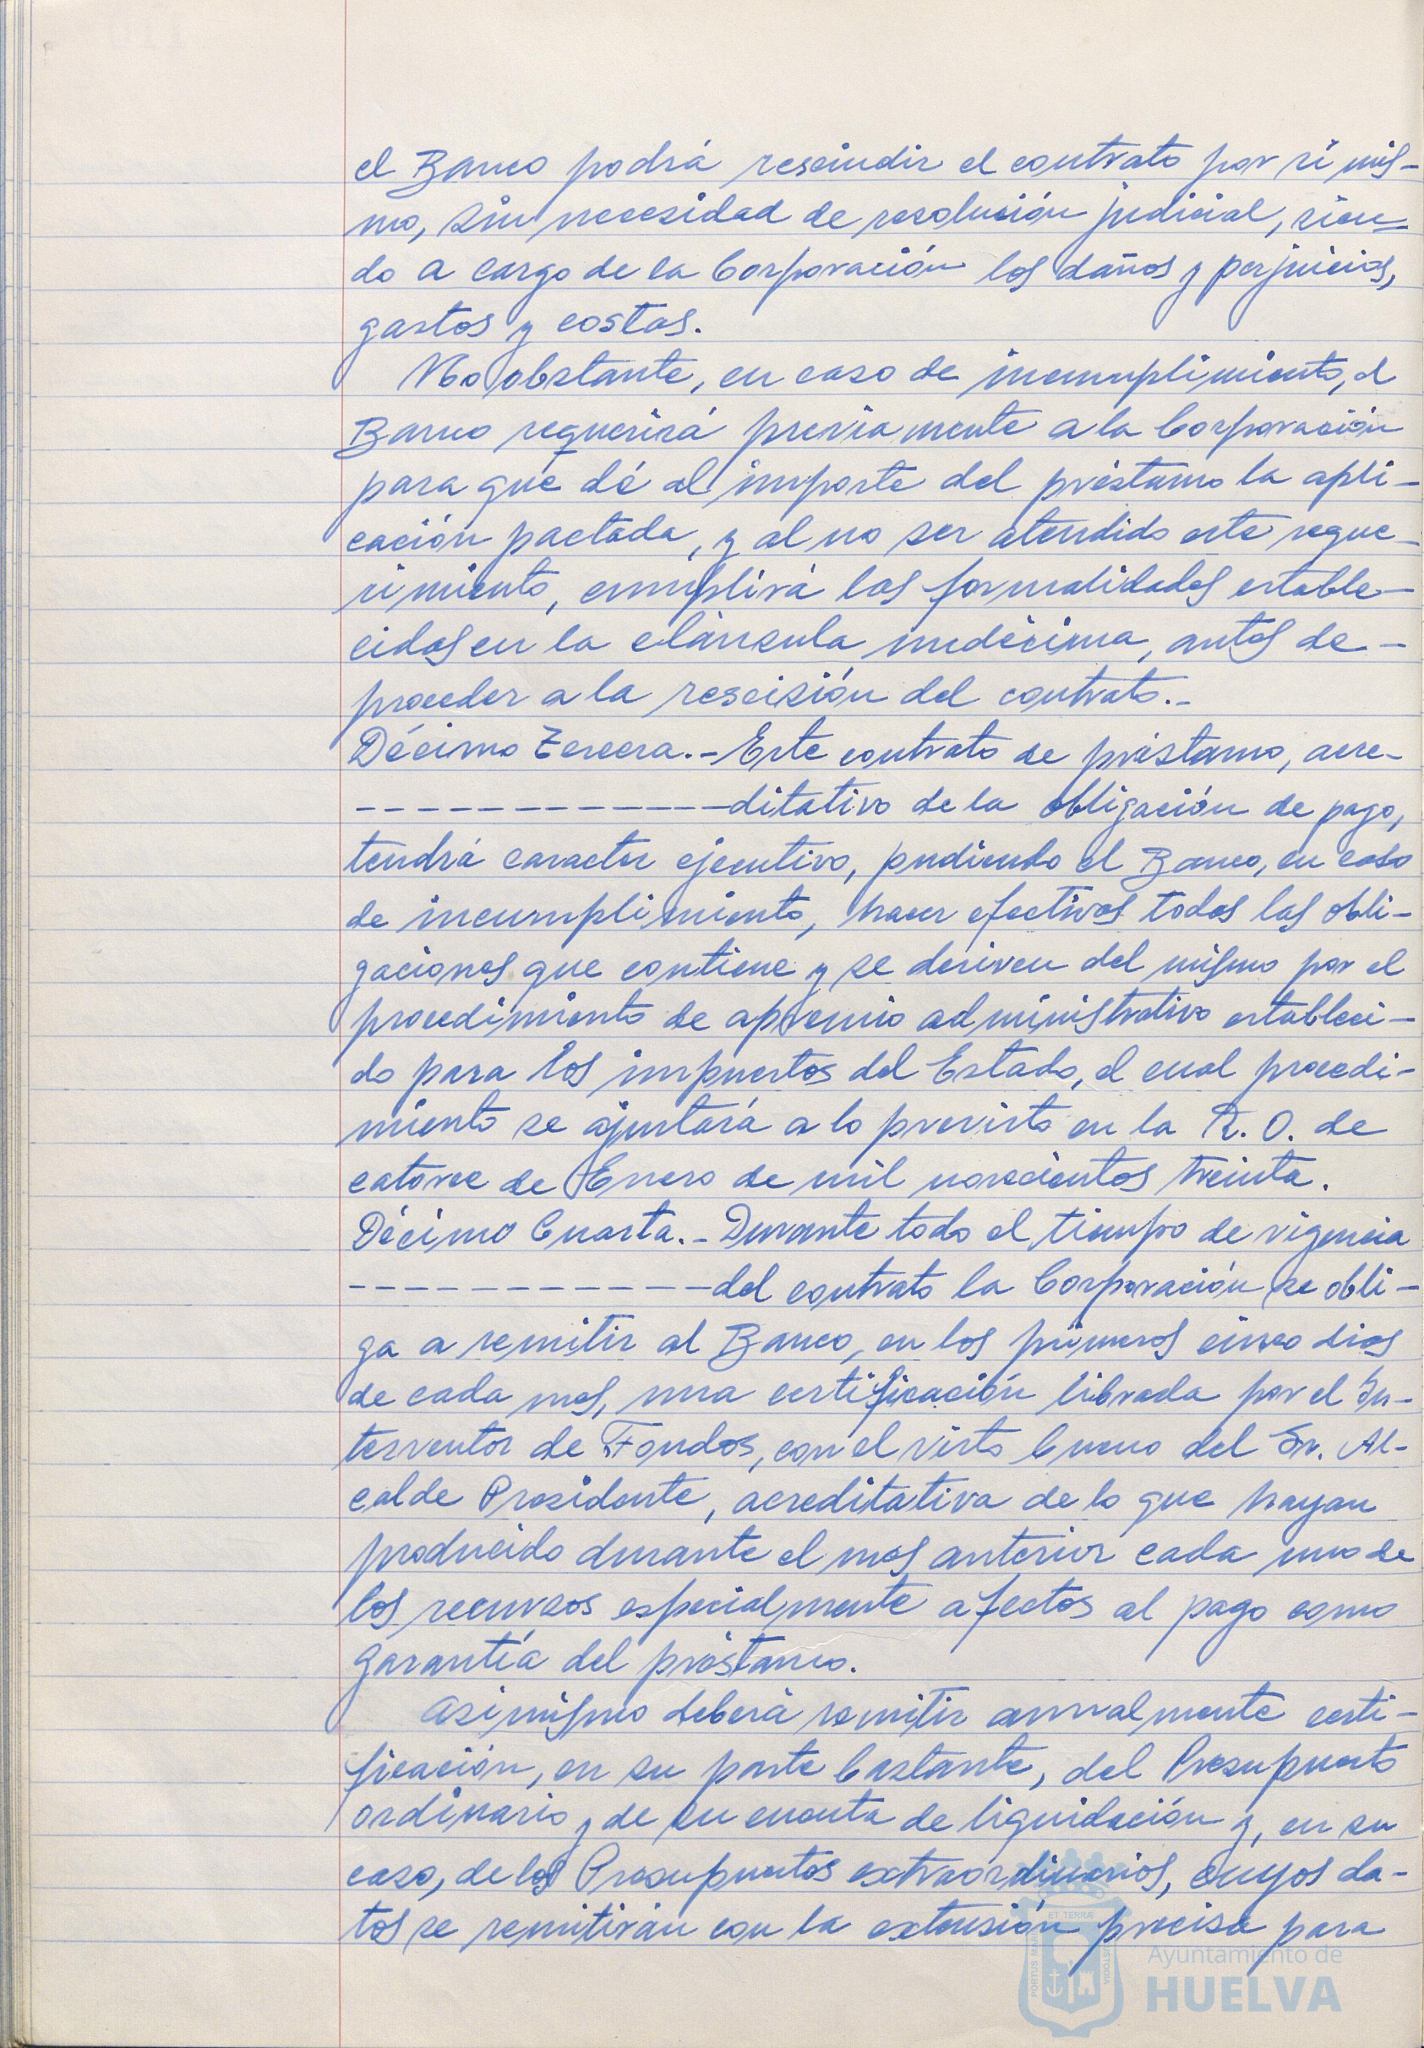 el Banco podrá rescindir el contrato por si mis-
mo, sin necesidad de resolución judicial, sien-
do a cargo de la Corporación los daños y perjuicios,
gastos y costas.
No obstante, en caso de incumplimiento, el
Banco requerirá previamente a la Corporación
para que dé al importe del préstamo la apli-
cación pactada, y al no ser atendido este reque-
rimiento, cumplirá las formalidades estable-
cidas en la cláusula undécima, antes de -
proceder a la rescisión del contrato.-
Décimo Tercera.- Este contrato de préstamo, acre-
------------- ditativo de la obligación de pago,
tendrá caracter ejecutivo, pudiendo el Banco, en caso
de incumplimiento, hacer efectivas todas las obli-
gaciones que contiene y se deriven del mismo por el
procedimiento de apremio administrativo estableci-
do para los impuestos del Estado, el cual procedi-
miento se ajustará a lo previsto en la R. O. de
catorce de Enero de mil novecientos treinta.
Décimo Cuarta.- Durante todo el tiempo de vigencia
------------- del contrato la Corporación se obli-
ga a remitir al Banco, en los primeros cinco dias
de cada mes, una certificación librada por el In-
terventor de Fondos, con el visto bueno del Sr. Al-
calde Presidente, acreditativa de lo que hayan
producido durante el mes anterior cada uno de
los recursos especialmente afectos al pago como
garantía del préstamo.
Asimismo deberá remitir anualmente certi-
ficación, en su parte bastante, del Presupuesto
ordinario y de su cuenta de liquidación y, en su
caso, de los Presupuestos extraordinarios, cuyos da-
tos se remitirán con la extensión precisa para
PORTUS MARIS ET TERRÆ CUSTODIA
Ayuntamiento de
HUELVA